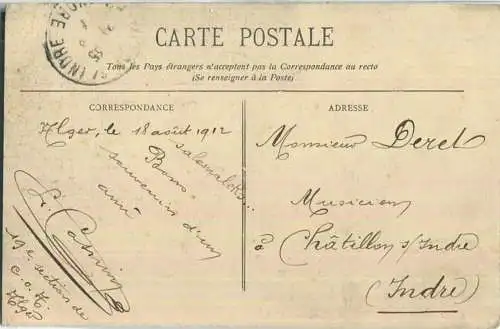 INDRE
CARTE POSTALE
Tous les Pays étrangers n'acceptent pas la Correspondance au recto
(Se renseigner à la Poste)
CORRESPONDANCE
Alger, le 18 août 1912
Bons
souvenirs d'un
ami
19e section de
C. O. A.
Alger
ADRESSE
Monsieur Deret
Musicien
à Châtillon s/Indre
(Indre)